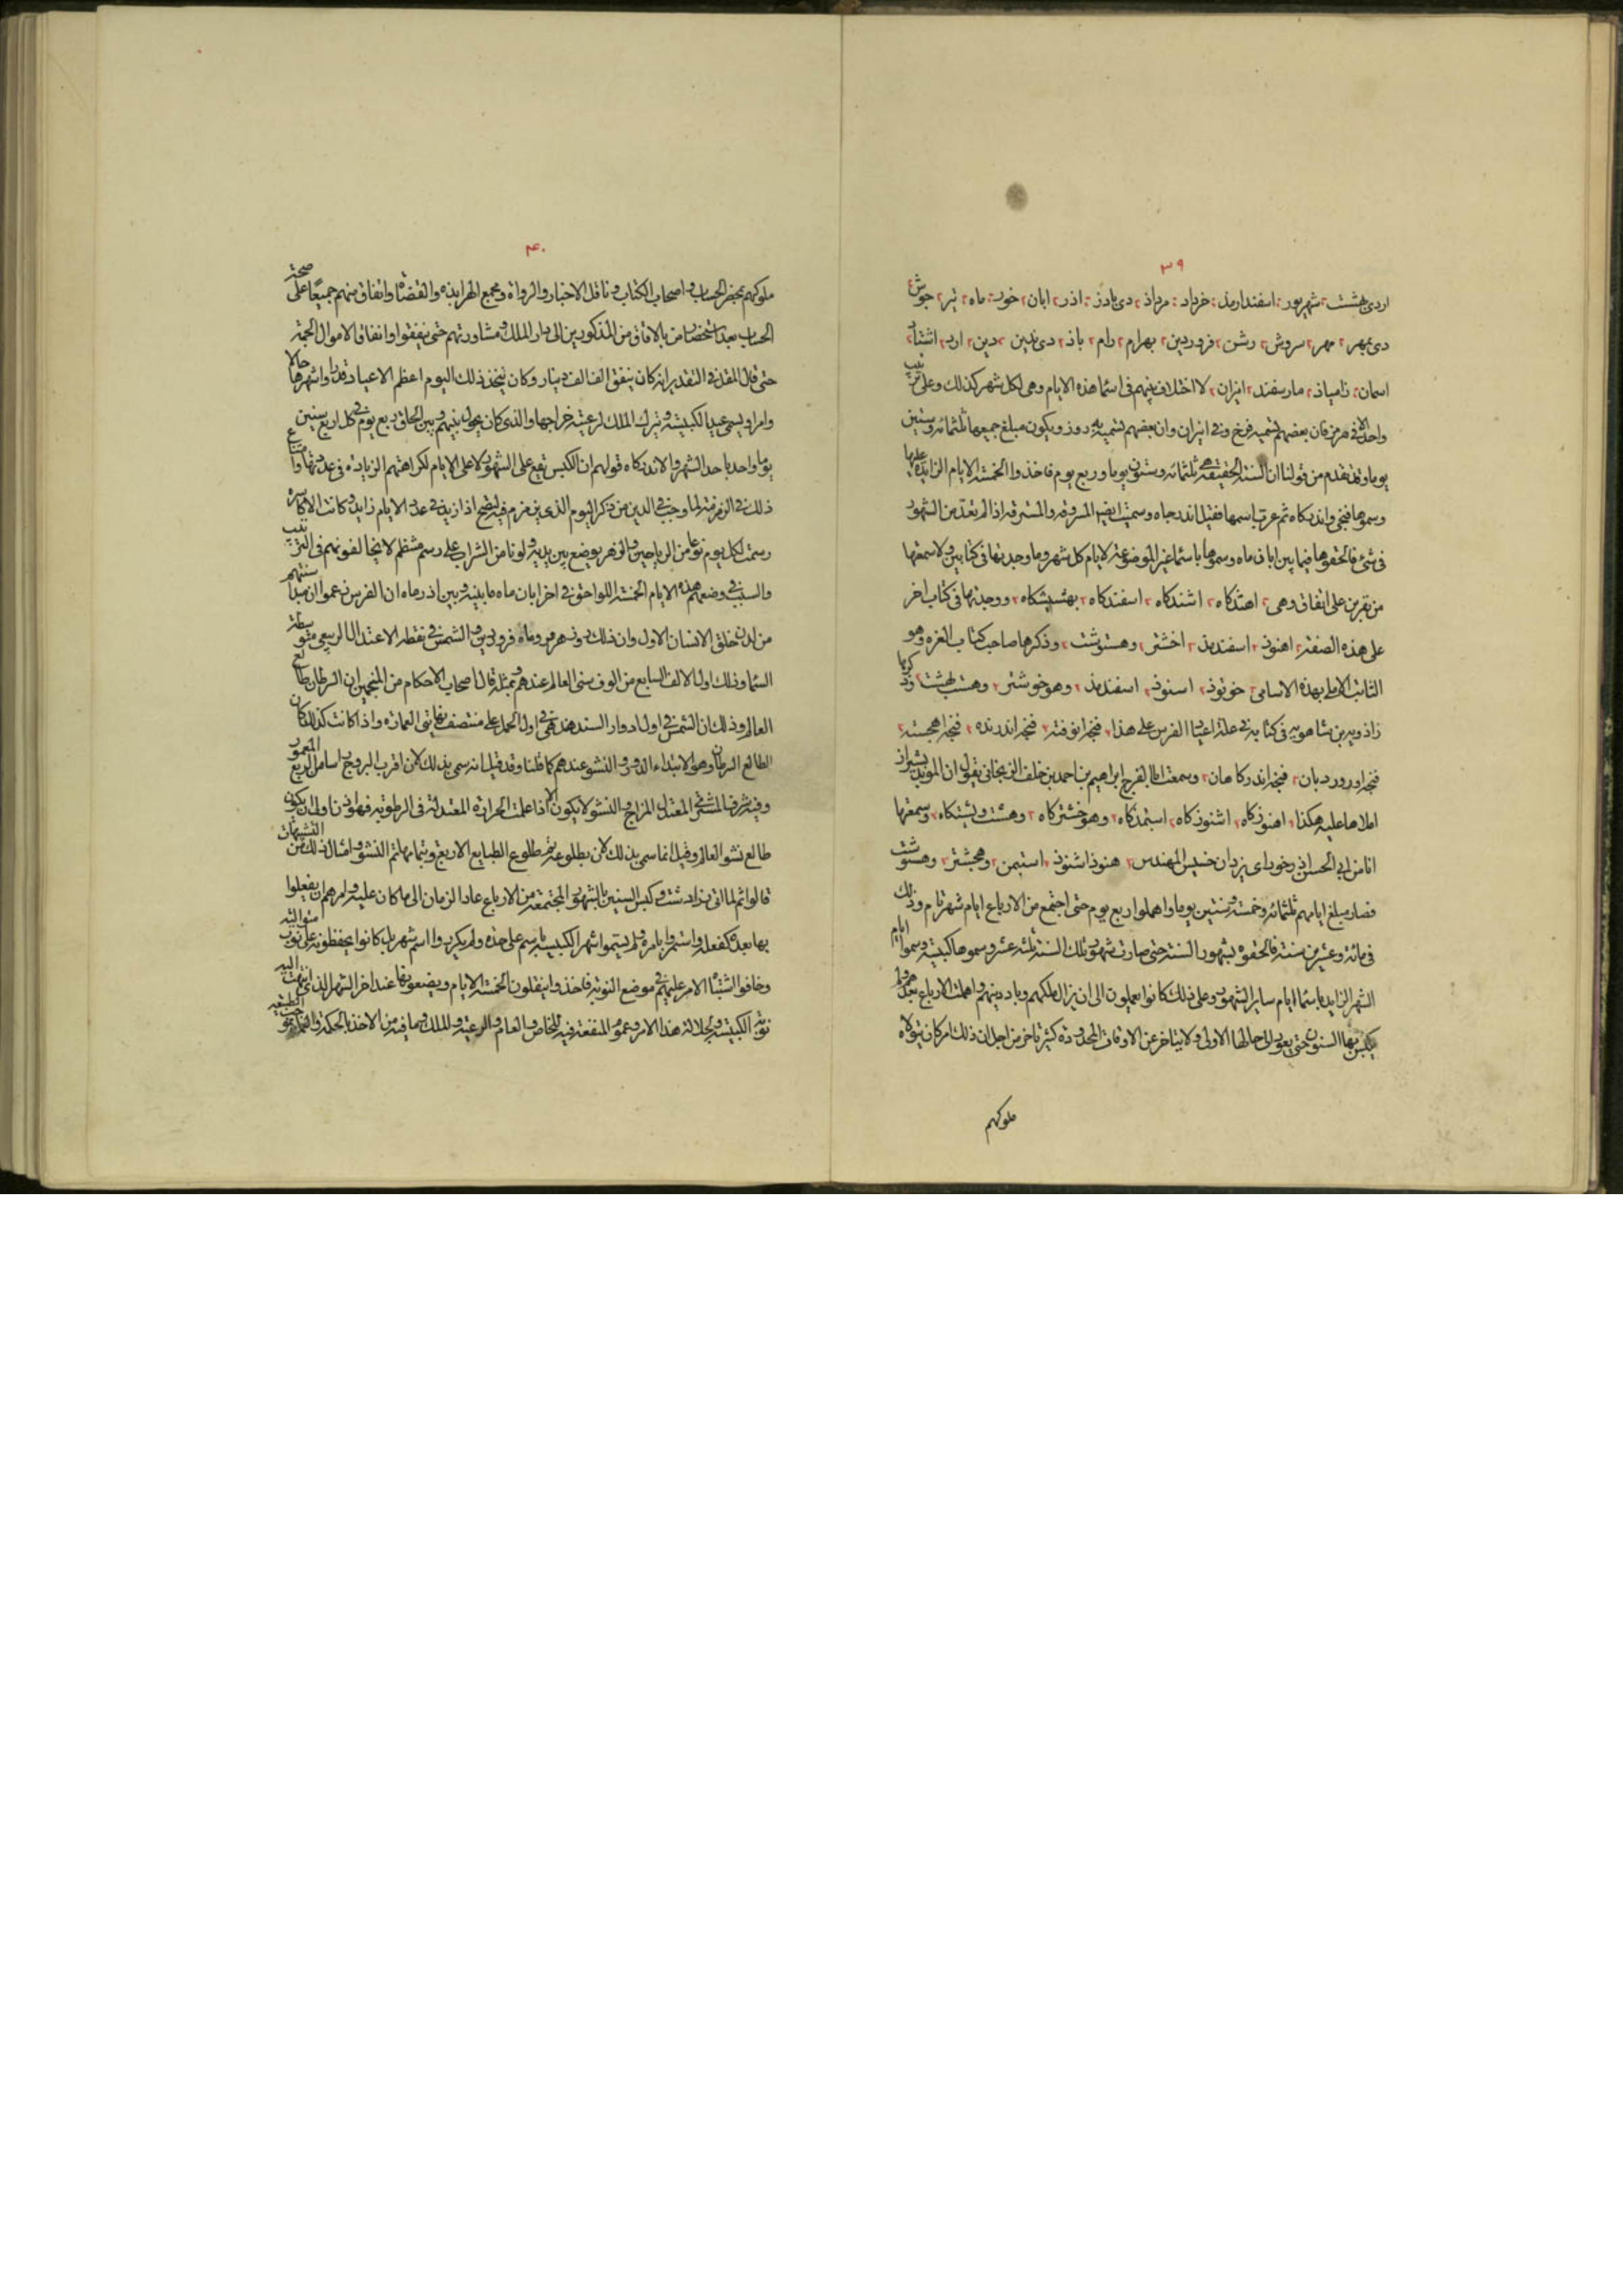 ٣٩
اردى بهشت شهريور اسفندارمذ خرداد مرداذ دى باذر اذر ابان خور ماه تير جوش
دى بمهر مهر سروش رشن فروردين بهرام رام باذ دى بدين دين ارد اشتاد
اسمان زامياذ مارسفند انيران لا اختلاف بينهم فى اسماء هذه الايام وهى لكل شهر كذلك وعلى ترتيب
واحد الا فى هرمز فان بعضهم تسميه فرخ وفى انيران وان بعضهم تسميه به روز ويكون مبلغ جميعها ثلثمائه وستين
يوما وقد تقدم من قولنا ان السنة الحقيقية هى ثلثمائه وستون يوما وربع يوم فاخذوا الخمسة الايام الزايدة عليها
وسموها فنجى واندركاه ثم عرب اسمها فقيل اندرجاه وسميت ايضا المسروقه والمسترقه اذ لم تعد من الشهور
فى شئ فالحقوها فيما بين ابان ماه وسموها باسماء غير الموضوعة لايام كل شهر وما وجدتها فى كتابين ولا سمعتها
من نفرين على اتفاق وهى اهندكاه اشندكاه اسفندكاه بهشيشكاه ووجدتها فى كتاب اخر
على هذه الصفة اهنوذ اسفندمذ اخشتر وهستوشت وذكرها صاحب كتاب الغره وهو
النائب الاملى بهذه الاسامى خونوذ اسنوذ اسفندمذ وهو خوشتر وهست بهشت وذكرها
زاذويه بن شاهويه فى كتابه فى علة اعياد الفرس على هذا فنجه انوفته فنجه اندرنده فنجه اهجسته
فنجه اوروردبان فنجه اندركاهان وسمعت ابا الفرج ابراهيم بن احمد بن خلف الزنجانى يقول ان الموبد بشيراز
املاها عليه هكذا اهنوذكاه اشنوذكاه اسبتمذكاه وهو خشتركاه وهشت ويشتكاه وسمعتها
انا من ابى الحسن اذرخوراى يزدان خسيس المهندس هنوذ اشنوذ استيمن وهجشتر وهستوشت
فصار مبلغ ايامهم ثلثمائه وخمسة وستين يوما واهملوا ربع يوم حتى اجتمع من الارباع ايام شهر تام وذلك
فى مائه وعشرين سنة فالحقوه بشهور السنة حتى صارت شهور تلك السنة ثلثه عشر وسموها كبيسة وسموا ايام
الشهر الزايد باسماء ايام ساير الشهور وعلى ذلك كانوا يعملون الى ان يزال ملكهم وباد دينهم واهملت الارباع بعدهم ولم
يكبس بها السنون حتى يعود الى حالها الاولى ولا يتاخر عن الاوقات المحدودة كثير تاخر من اجل ان ذلك امر كان يتولاه
ملوكهم
٤٠
ملوكهم بمحضر الحساب واصحاب الكتاب وناقل الاخبار والرواة ومجمع الهرابذه والقضاة واتفاق منهم جميعا على صحة
الحساب بعد استحضار من بالافاق من المذكورين الى دار الملك ومشاورتهم حتى يتفقوا وانفاق الاموال الجمة
حتى قال المقل فى التقدير انه كان ينفق الف الف دينار وكان يتخذ ذلك اليوم اعظم الاعياد قدرا واشهرها حالا
وامرا ويسمى عيد الكبيسة ويترك الملك لرعيته خراجها والذى كان يحول بينهم وبين الحاق ربع يوم فى كل اربع سنين
يوما واحدا باحد الشهور او الاندركاه قولهم ان الكبس يقع على الشهور لا على الايام لكراهتهم الزيادة فى عدتها وامتناع
ذلك فى الزمزمة لما وجب فى الدين من ذكر اليوم الذى يزمزم فيه ليصح اذا زيد فى عدد الايام زايد وكانت الاكاسرة
رسمت لكل يوم نوعا من الرياحين والزهر يوضع بين يديه ولونا من الشراب على رسم منتظم لا يخالفونهم فى الترتيب
والسبب فى وضعهم هذه الايام الخمسة اللواحق فى اخر ابان ماه ما بينه وبين اذرماه ان الفرس زعموا ان مبدأ سنتهم
من لدن خلق الانسان الاول وان ذلك روز هرمز وماه فروردين والشمس فى نقطة الاعتدال الربيعى متوسطة
السماء وذلك اول الالف السابع من الوف سنى العالم عندهم وبمثله قال اصحاب الاحكام من المنجمين ان السرطان طالع
العالم وذلك ان الشمس فى اول ادوار السند هند هى فى اول الحمل على منتصف نهايتى العمارة واذا كانت كذلك كان
الطالع السرطان وهو لابتداء الدور والنشو عندهم كما قلنا وقد قيل انه سمى بذلك لانه اقرب البروج راسا من الربع المعمور
وفيه شرف المشترى المعتدل المزاج والنشو لا يكون الا اذا عملت الحرارة المعتدلة فى الرطوبة فهو اذن اولى ان يكون
طالع نشو العالم وقيل انما سمى بذلك لان بطلوعه تم طلوع الطبايع الاربع وبتمامها تم النشو وامثال ذلك من التشبيهات
قالوا ثم لما اتى زرادشت وكبس السنين بالشهور المجتمعة من الارباع عاد الزمان الى ما كان عليه وامرهم ان يفعلوا
بها بعده كفعله وائتمروا بامره ولم يسموا شهر الكبيسة باسم على حده ولم يكرروا اسم شهر بل كانوا يحفظونه على نوب متواليه
وخافوا اشتباه الامر عليهم فى موضع النوبة فاخذوا ينقلون الخمسة الايام ويضعونها عند اخر الشهر الذى انتهت اليه
نوبة الكبيسة ولجلالة هذا الامر وعموم المنفعة فيه للخاص والعام والرعية والملك وما فيه من الاخذ بالحكمة والعمل بموجب الطبيعة